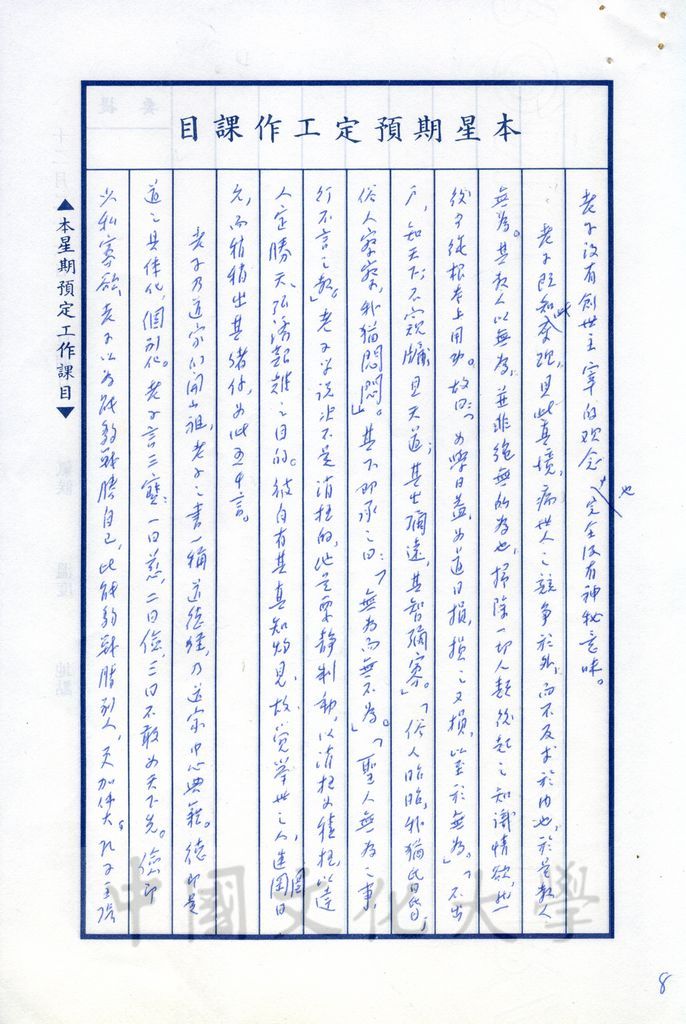 本星期預定工作課目
老子沒有創世主宰的观念,也完全没有神秘意味。
老子既知此真境,痛世人之競争於外,而不反求於内也,於是教人
無為。其教人以無為,並非絕無所為也,掃除一切人類後起之知識情欲,
後可從根本上用功。故曰:「為學日益,為道日損,損之又損,以至於無為。」「不出
户,知天下;不窺牖,見天道;其出彌遠,其智彌寡。」「俗人昭昭,我獨昏昏;
俗人察察,我獨悶悶」。其下即承之曰:「無為而無不為。」「聖人無為之事,
行不言之教」。老子学説非不是消极的,他是要静制動,以消极為積极,以達
人定勝天,之目的。彼自有其真知灼見,故觉举世之人,
先,而稍稍出其緒,為此五千言。
老子乃道家的開山祖,老子之書一稱道德經,乃道家中心典籍。德即是
道之具体化,個别化。老子言三寶:一曰慈,二曰儉,三曰不敢為天下先。儉即
少私寡欲,老子以為能夠戰勝自己,比能夠戰勝别人,更加伟大。孔子主張
▲本星期預定工作課目▼
中國文化大學
8